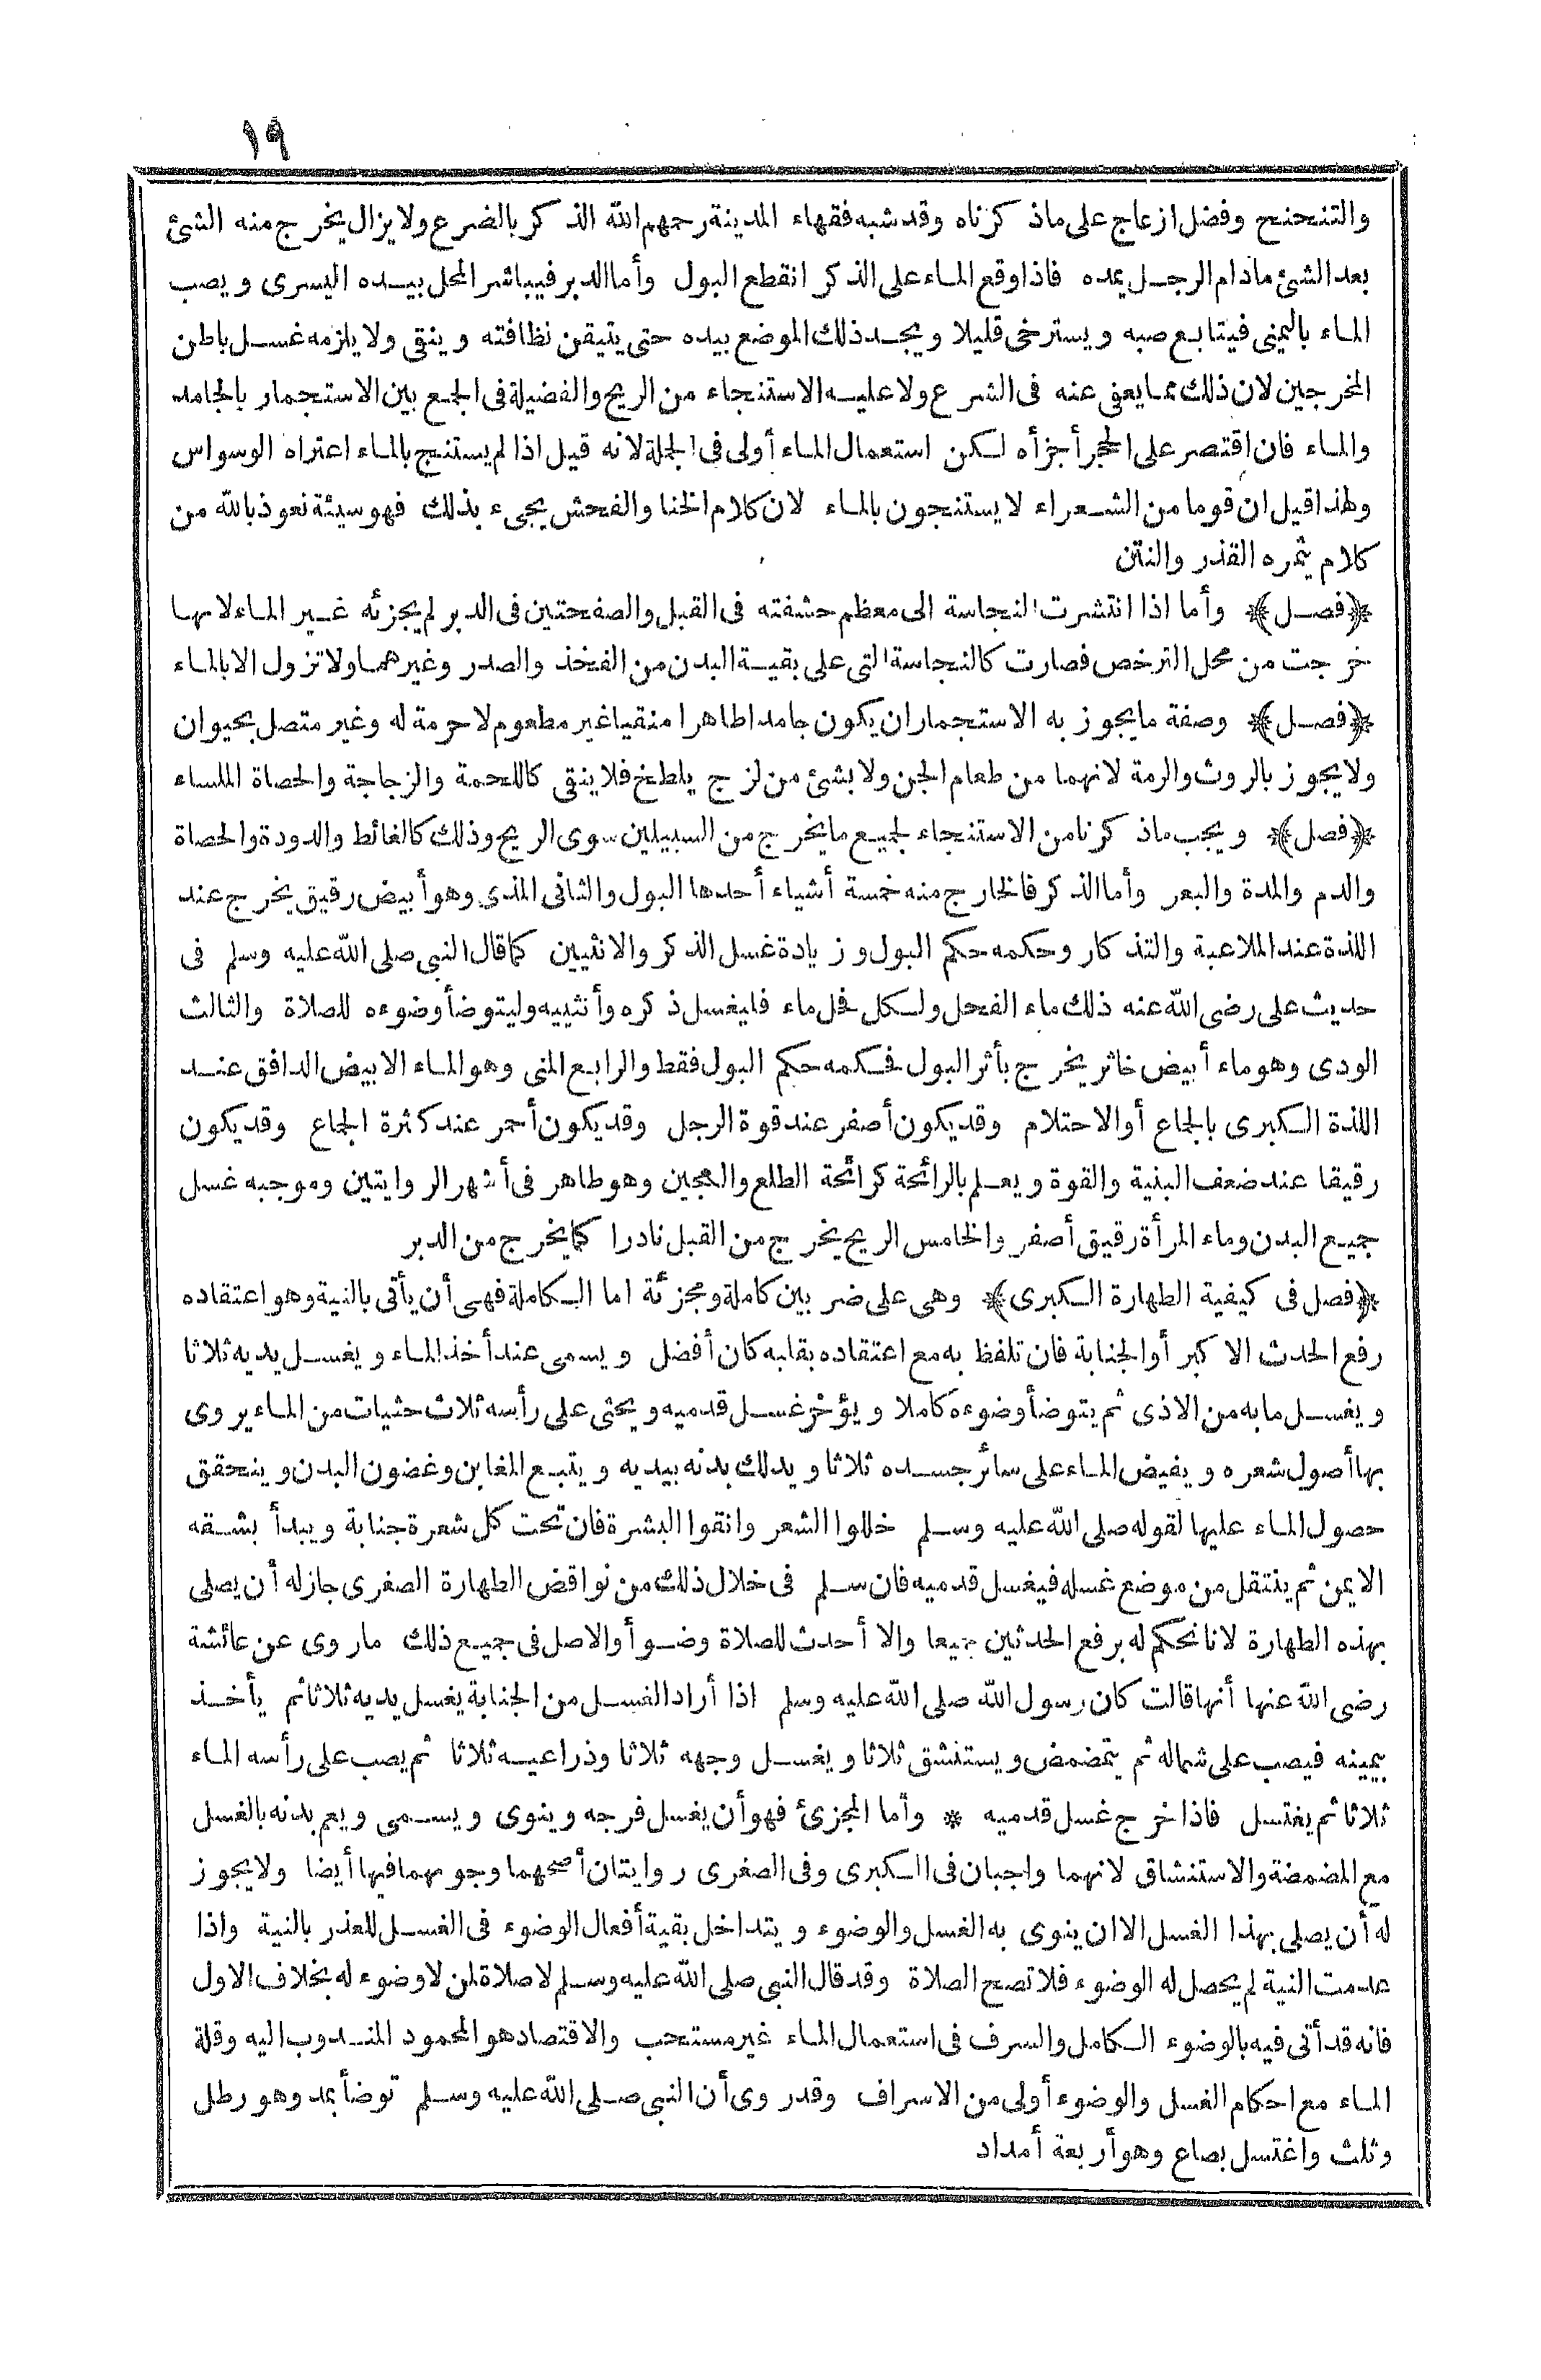 ١٩
والتنحنح وفضل ازعاج على ماذ كرناه وقد شبه فقهاء المدينة رحمهم الله الذكر بالضرع ولا يزال يخرج منه الشئ
بعد الشئ مادام الرجل يمده فاذا وقع الماء على الذكر انقطع البول وأما الدبر فيباشر المحل بيده اليسرى ويصب
الماء باليمنى فيتابع صبه ويسترخى قليلا ويجد ذلك الموضع بيده حتى يتيقن نظافته وينقى ولا يلزمه غسل باطن
المخرجين لان ذلك مما يعفى عنه فى الشرع ولا عليه الاستنجاء من الريح والفضيلة فى الجمع بين الاستجمار بالجامد
والماء فان اقتصر على الحجر أجزأه لكن استعمال الماء أولى فى الجملة لانه قيل اذا لم يستنج بالماء اعتراه الوسواس
ولهذا قيل ان قوما من الشعراء لا يستنجون بالماء لان كلام الخنا والفحش يجىء بذلك فهو سيئة نعوذ بالله من
كلام يثمره القذر والنتن
﴿فصل﴾ وأما اذا انتشرت النجاسة الى معظم حشفته فى القبل والصفحتين فى الدبر لم يجزئه غير الماء لانها
خرجت من محل الترخص فصارت كالنجاسة التى على بقية البدن من الفخذ والصدر وغيرهما ولا تزول الا بالماء
﴿فصل﴾ وصفة ما يجوز به الاستجمار ان يكون جامدا طاهرا منقيا غير مطعوم لا حرمة له وغير متصل بحيوان
ولا يجوز بالروث والرمة لانهما من طعام الجن ولا بشئ من لزج يلطخ فلا ينقى كاللحمة والزجاجة والحصاة الملساء
﴿فصل﴾ ويجب ماذ كرنا من الاستنجاء لجميع ما يخرج من السبيلين سوى الريح وذلك كالغائط والدودة والحصاة
والدم والمدة والبعر وأما الذكر فالخارج منه خمسة أشياء أحدها البول والثانى المذى وهو أبيض رقيق يخرج عند
اللذة عند الملاعبة والتذكار وحكمه حكم البول وزيادة غسل الذكر والانثيين كما قال النبى صلى الله عليه وسلم فى
حديث على رضى الله عنه ذلك ماء الفحل ولكل فحل ماء فليغسل ذكره وأنثييه وليتوضأ وضوءه للصلاة والثالث
الودى وهو ماء أبيض خاثر يخرج بأثر البول فحكمه حكم البول فقط والرابع المنى وهو الماء الابيض الدافق عند
اللذة الكبرى بالجماع أو الاحتلام وقد يكون أصفر عند قوة الرجل وقد يكون أحمر عند كثرة الجماع وقد يكون
رقيقا عند ضعف البنية والقوة ويعلم بالرائحة كرائحة الطلع والعجين وهو طاهر فى أشهر الروايتين وموجبه غسل
جميع البدن وماء المرأة رقيق أصفر والخامس الريح يخرج من القبل نادرا كما يخرج من الدبر
﴿فصل فى كيفية الطهارة الكبرى﴾ وهى على ضربين كاملة ومجزئة اما الكاملة فهى أن يأتى بالنية وهو اعتقاده
رفع الحدث الاكبر أو الجنابة فان تلفظ به مع اعتقاده بقلبه كان أفضل ويسمى عند أخذ الماء ويغسل يديه ثلاثا
ويغسل ما به من الاذى ثم يتوضأ وضوءه كاملا ويؤخر غسل قدميه ويحثى على رأسه ثلاث حثيات من الماء يروى
بها أصول شعره ويفيض الماء على سائر جسده ثلاثا ويدلك بدنه بيديه ويتبع المغابن وغضون البدن ويتحقق
حصول الماء عليها لقوله صلى الله عليه وسلم خللوا الشعر وانقوا البشرة فان تحت كل شعرة جنابة ويبدأ بشقه
الايمن ثم ينتقل من موضع غسله فيغسل قدميه فان سلم فى خلال ذلك من نواقض الطهارة الصغرى جاز له أن يصلى
بهذه الطهارة لانا نحكم له برفع الحدثين جميعا والا أحدث للصلاة وضوأ والاصل فى جميع ذلك ماروى عن عائشة
رضى الله عنها أنها قالت كان رسول الله صلى الله عليه وسلم اذا أراد الغسل من الجنابة يغسل يديه ثلاثا ثم يأخذ
بيمينه فيصب على شماله ثم يتمضمض ويستنشق ثلاثا ويغسل وجهه ثلاثا وذراعيه ثلاثا ثم يصب على رأسه الماء
ثلاثا ثم يغتسل فاذا خرج غسل قدميه * وأما المجزئ فهو أن يغسل فرجه وينوى ويسمى ويعم بدنه بالغسل
مع المضمضة والاستنشاق لانهما واجبان فى الكبرى وفى الصغرى روايتان أصحهما وجوبهما فيها أيضا ولا يجوز
له أن يصلى بهذا الغسل الا ان ينوى به الغسل والوضوء ويتداخل بقية أفعال الوضوء فى الغسل للعذر بالنية واذا
عدمت النية لم يحصل له الوضوء فلا تصح الصلاة وقد قال النبى صلى الله عليه وسلم لا صلاة لمن لا وضوء له بخلاف الاول
فانه قد أتى فيه بالوضوء الكامل والسرف فى استعمال الماء غير مستحب والاقتصاد هو المحمود المندوب اليه وقلة
الماء مع احكام الغسل والوضوء أولى من الاسراف وقد روى أن النبى صلى الله عليه وسلم توضأ بمد وهو رطل
وثلث واغتسل بصاع وهو أربعة أمداد